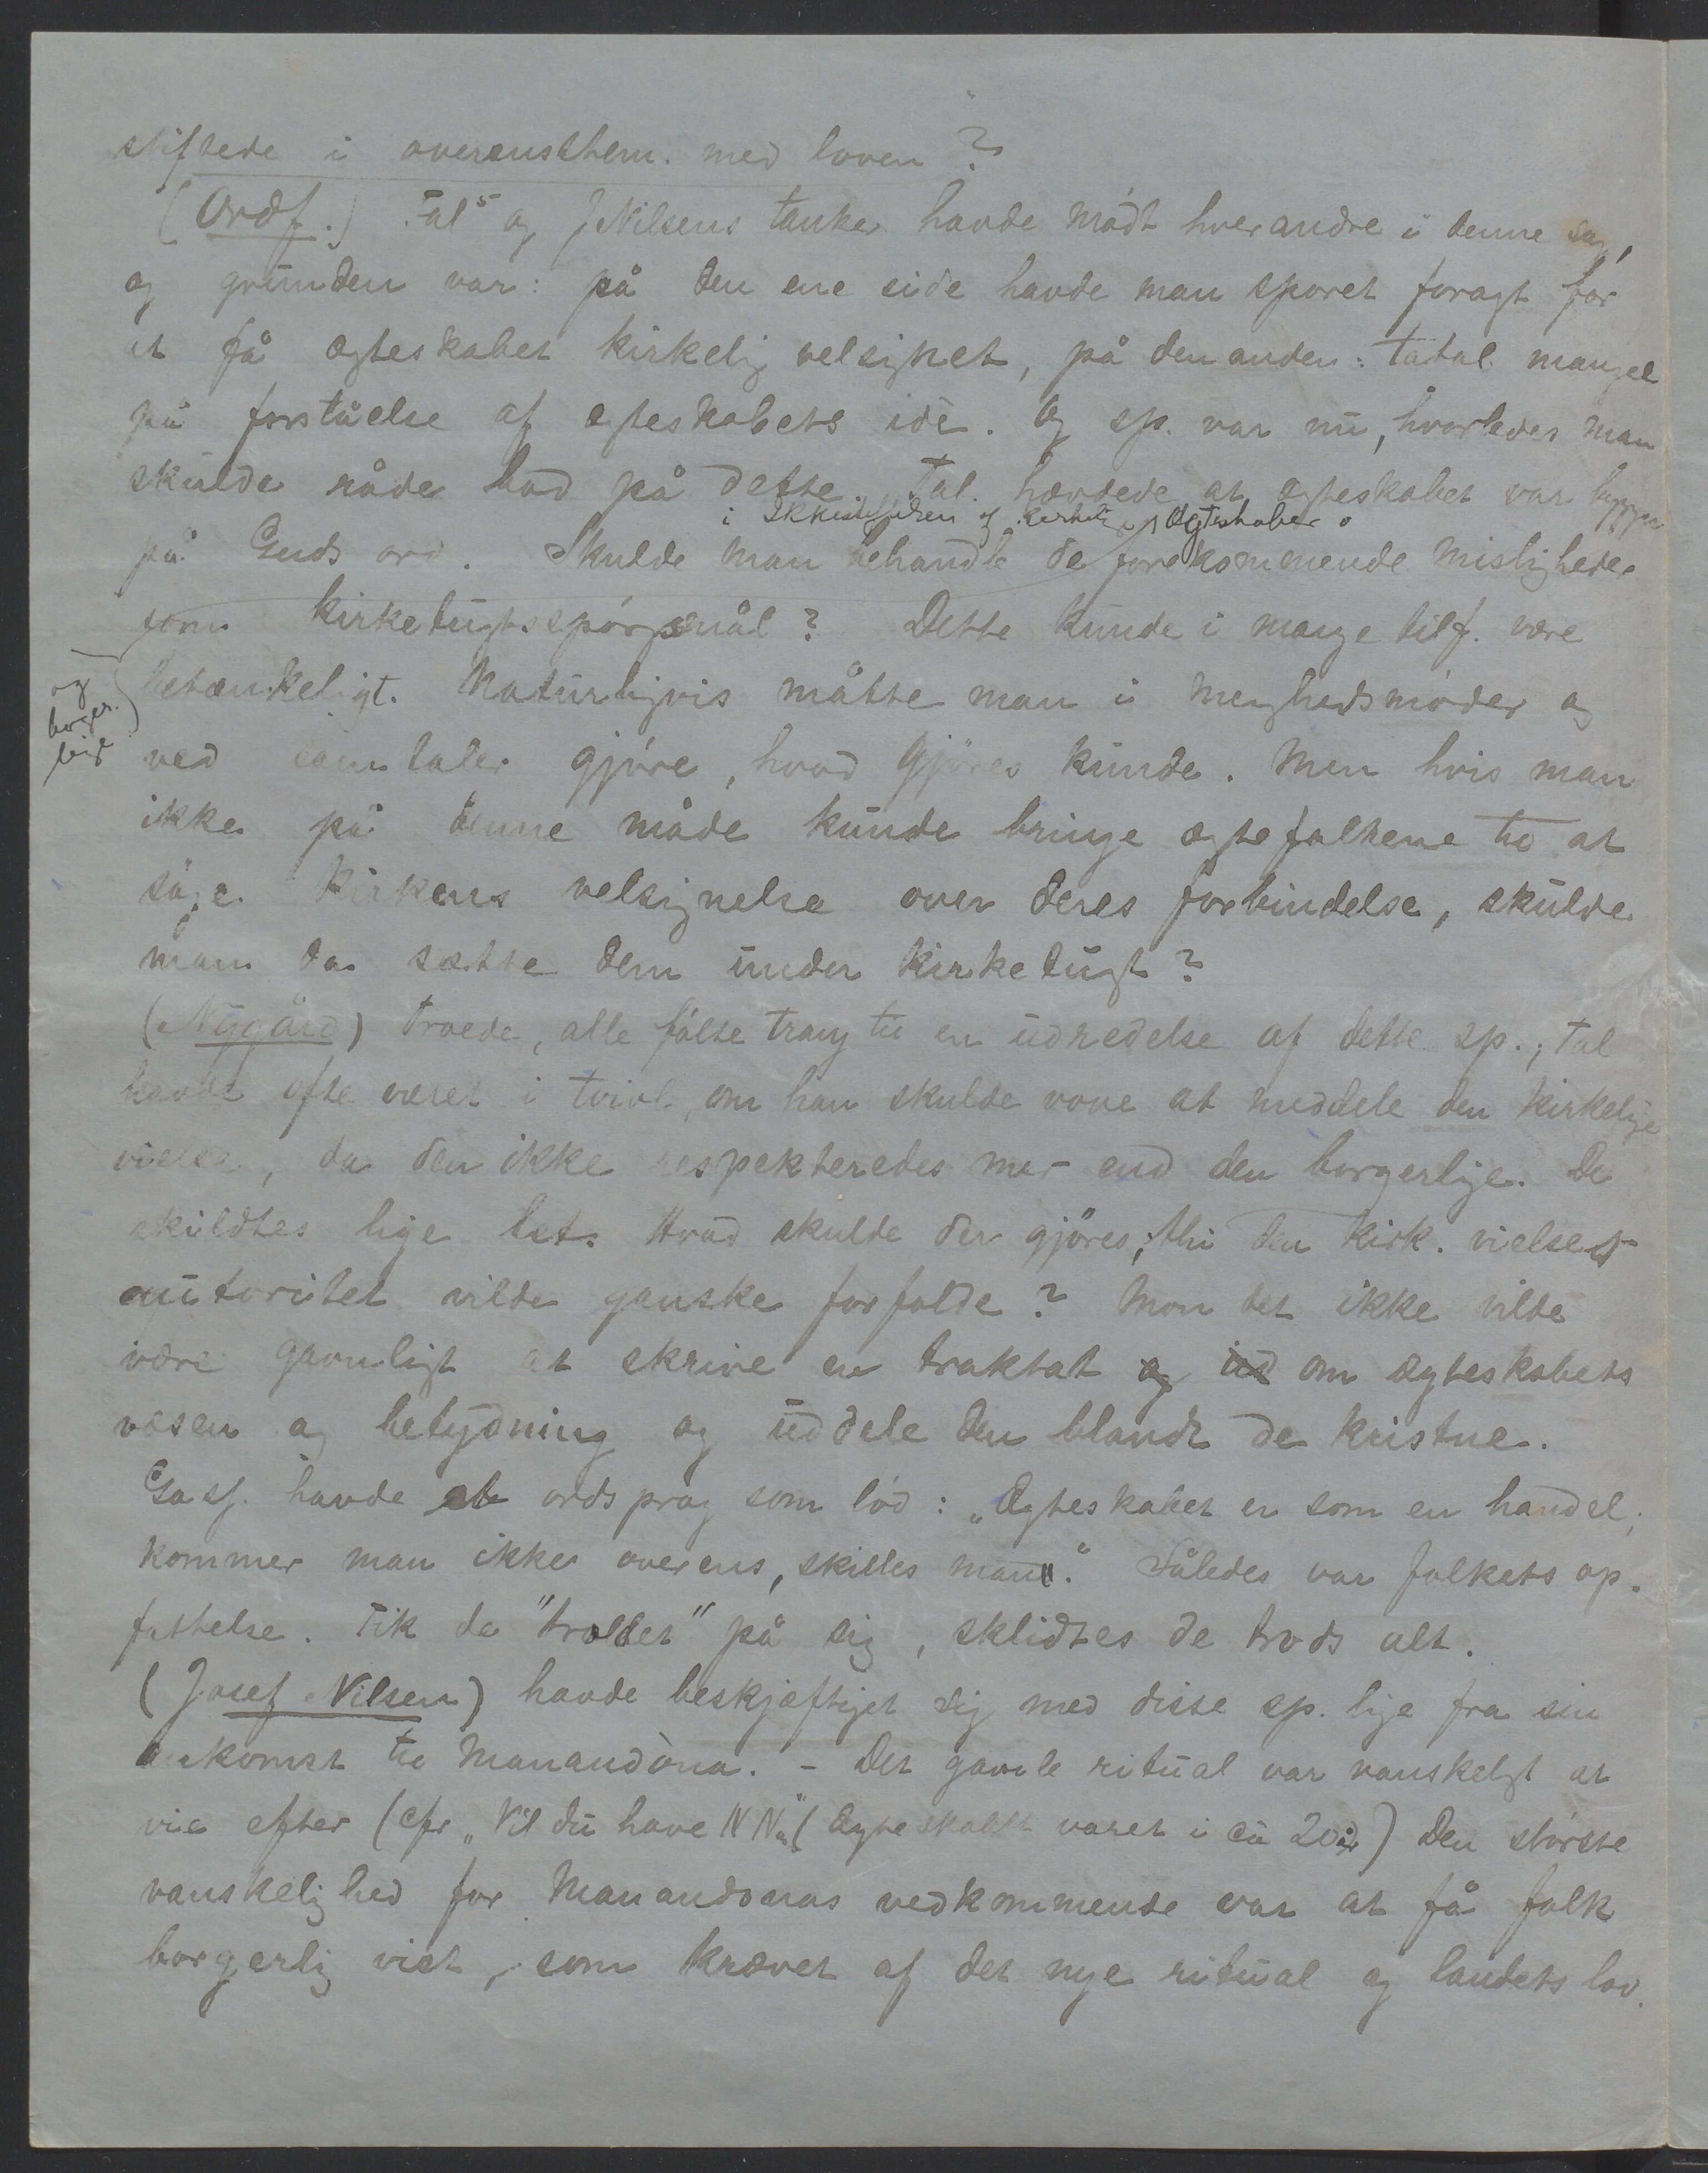 stiftede i overensstem. med loven?
(Ordf.) Tal's og J Nilsens tanker havde mødt hverandre i denne sag,
og grunden var: på den ene side havde man sporet foragt for
at få ægteskabet kirkelig velsignet, på den anden: total mangel
på forståelse af ægteskabets idè. Og sp. var nu, hvorledes man
skulde råde bod på dette. Tal. hævdede, at ægteskabet var bygget
i Ikkestiftelsen af kirkelige ægteskaber
på Guds ord. Skulde man behandle de forekommende misligheder
som kirketugtsspørgsmål? Dette kunde i mange tilf. være
betænkeligt. Naturligvis måtte man i menighedsmøder og
og
borger.
ved samtaler gjøre, hvad gjøres kunde. Men hvis man
ikke på denne måde kunde bringe ægtefolkene til at
søge kirkens velsignelse over deres forbindelse, skulde
man da sætte dem under kirketugt?
(Nygård) troede, alle følte trang til en udredelse af dette sp.; tal
havde ofte været i tvivl, om han skulde vove at meddele den kirkelige
vielse, da den ikke respekteredes mer end den borgerlige. De
skildtes lige let. Hvad skulde der gjøres; thi den kirk. vielses
autoritet vilde ganske forfalde? Mon det ikke vilde
være gavnligt at skrive en traktat og ud om ægteskabets
væsen og betydning og uddele den blandt de kristne.
Gass. havde et ordsprog som lød: „Ægteskabet er som en handel;
kommer man ikke overens, skilles man". Således var folkets op-
fattelse. Fik de "troldet" på sig, sklidtes de trods alt.
(Josef Nilsen) havde beskjæftiget sig med disse sp. lige fra sin
ankomst til Manandòna. - Det gamle ritual var vanskeligt at
vie efter (cfr „Vil du have N N" (ægteskabet varet i ca 20 år) Den største
vanskelighed for Manandonas vedkommende var at få folk
borgerlig viet, som krævet af det nye ritual og landets lov.